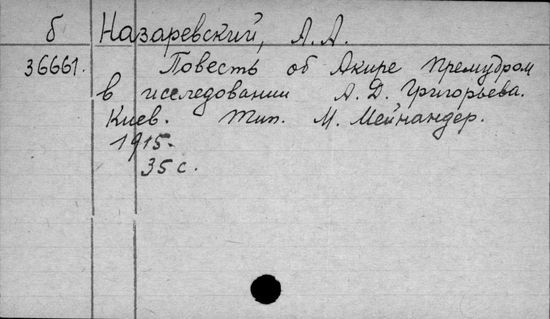 б Назаревский, А.А.
36661. Повесть об Акире Премудром
в исследовании А.Д. Григорьева.
Киев. Тип. М. Мейнандер.
1915.
35 с.